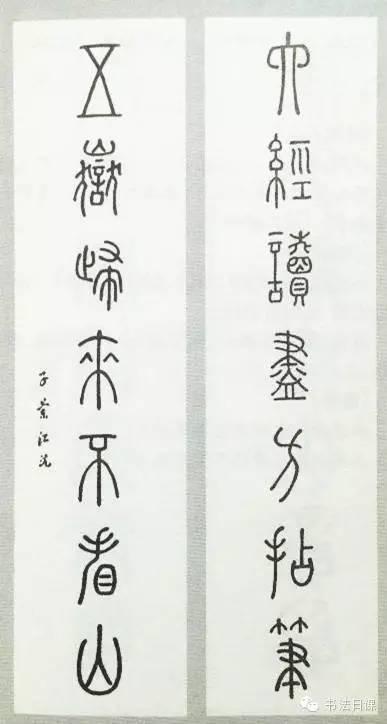 六經讀盡方拈筆
五嶽歸來不看山
子蘭江沅
书法日课